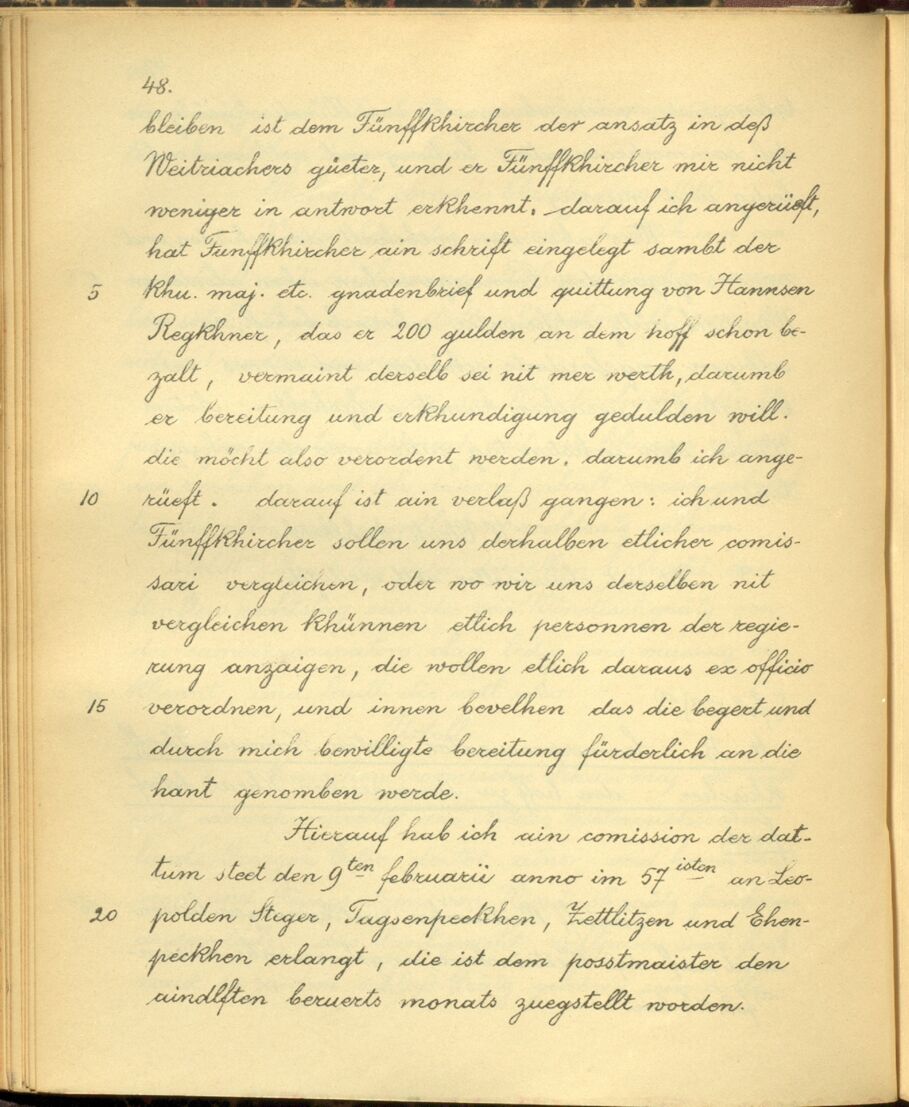 48.
bleiben ist dem Fünffkhircher der ansatz in deß
Weitriachers güeter, und er Fünffkhircher mir nicht
weniger in antwort erkhennt. darauf ich angerüeft,
hat Funffkhircher ain schrift eingelegt sambt der
5 khu. maj. etc. gnadenbrief und quittung von Hannsen
Regkhner, das er 200 gulden an dem hoff schon be-
zalt, vermaint derselb sei nit mer werth, darumb
er bereitung und erkhundigung gedulden will.
die möcht also verordent werden. darumb ich ange-
10 rüeft. darauf ist ain verlaß gangen: ich und
Fünffkhircher sollen uns derhalben etlicher comis-
sari vergleichen, oder wo wir uns derselben nit
vergleichen khünnen etlich personnen der regie-
rung anzaigen, die wollen etlich daraus ex officio
15 verordnen, und innen bevelhen das die begert und
durch mich bewilligte bereitung fürderlich an die
hant genomben werde.
Hierauf hab ich ain comission der dat-
tum steet den 9ten februarii anno im 57isten an Leo-
20 polden Steger, Tagsenpeckhen, Zettlitzen und Ehen-
peckhen erlangt, die ist dem posstmaister den
aindlften beruerts monats zuegstellt worden.